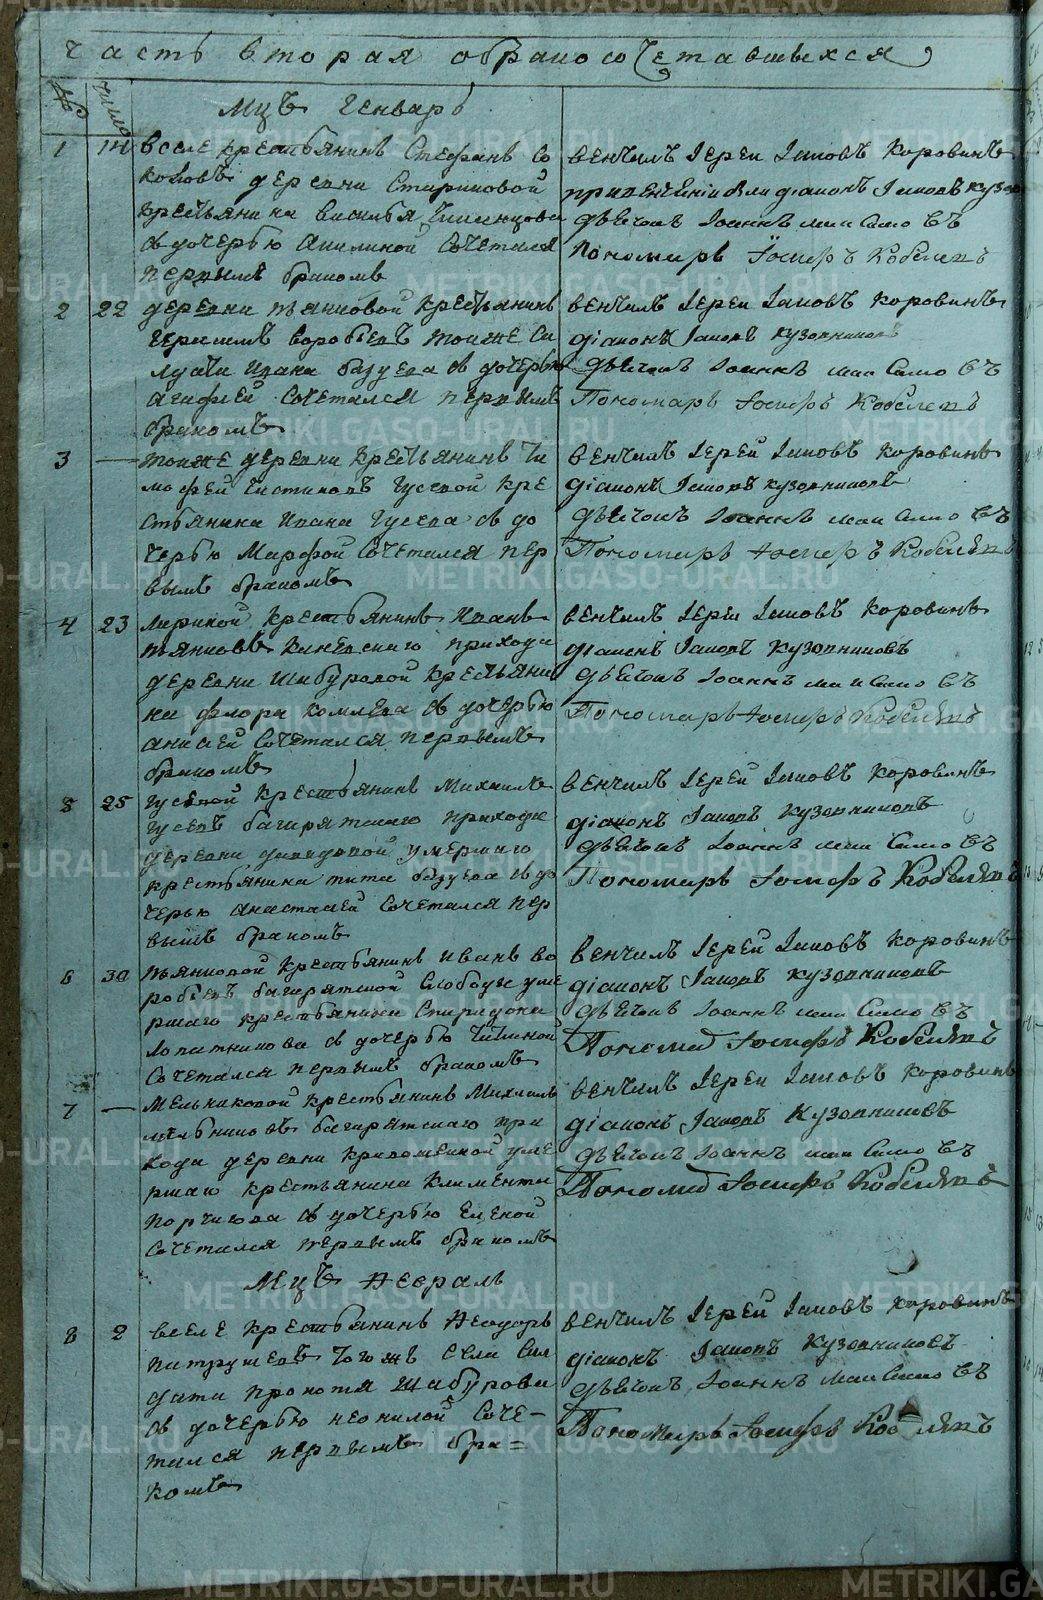 часть вторая о бракосочетавшихся
№ число
Мцъ Генварь
1 14 вселе крестьянинъ Стефанъ Со
коловъ деревни Стариковой
крестьянина василья
дочерью Акилиной Сочетался
первымъ бракомъ
венчалъ Іереи Іаковъ Коровинъ
привенчаніи были діаконъ Іаковъ
дьячокъ Іоаннъ
пономарь Іосифъ Кобелевъ
2 22 деревни пьянковой крестьянинъ
Герасимъ воробьевъ тояже Со
лдата Ивана базуева дочерью
агафьей Сочетался первымъ
бракомъ
венчалъ Іереи Іаковъ Коровинъ
діаконъ Іаковъ Кузовниковъ
дьячокъ Іоаннъ
Пономарь Іосифъ Кобелевъ
3 — тояже деревни Крестьянинъ Ти
мофей Чистяковъ Гусевой Кре
стьянина Ивана Гусева съ до
черью Марфой Сочетался пер
вымъ бракомъ
венчалъ Іерей Іаковъ Коровинъ
діаконъ Іаковъ Кузовниковъ
дьячокъ Іоаннъ
Пономарь Іосифъ Кобелевъ
4 23 крестьянинъ Иванъ
пьянковъ прихода
деревни Шабуровой Крестьяни
на флора Комлева съ дочерью
Сочетался первымъ
бракомъ
венчалъ Іереи Іаковъ Коровинъ
діаконъ Іаковъ Кузовниковъ
дьячокъ Іоаннъ
Пономарь Іосифъ Кобелевъ
5 25 Гусевой крестьянинъ Михаилъ
Гусевъ багарятскаго прихода
деревни давыдовой умершаго
крестьянина тита базуева съ до
черью анастасіей Сочетался пер
вымъ бракомъ
венчалъ Іерей Іаковъ Коровинъ
діаконъ Іаковъ Кузовниковъ
дьячокъ Іоаннъ
Пономарь Іосифъ Кобелевъ
6 30 пьянковой крестьянинъ иванъ во
робьевъ багарятской Слободы уме
ршаго крестьянина Спиридона
Лопатникова съ дочерью
Сочетался первымъ бракомъ
венчалъ Іерей Іаковъ Коровинъ
діаконъ Іаковъ Кузовниковъ
дьячокъ Іоаннъ
Пономар Іосифъ Кобелевъ
7 — Мельниковой крестьянинъ Михаилъ
мельниковъ багарятскаго при
хода деревни уме
ршаго крестьянина Климента
съ дочерью Еленой
Сочетался первымъ бракомъ
венчалъ Іереи Іаковъ Коровинъ
діаконъ Іаковъ Кузовниковъ
дьячокъ Іоаннъ
Пономар Іосифъ Кобелевъ
Мцъ Февраль
8 2 вселе крестьянинъ Феодоръ
патрушевъ тогожъ села Сол
дата прокопья Шабурова
съ дочерью неонилой Соче-
тался первымъ бра=
комъ
венчалъ Іерей Іаковъ Коровинъ
діаконъ Іаковъ Кузовниковъ
дьячокъ Іоаннъ
Пономарь Іосифъ Кобелевъ
METRIKI.GASO-URAL.RU